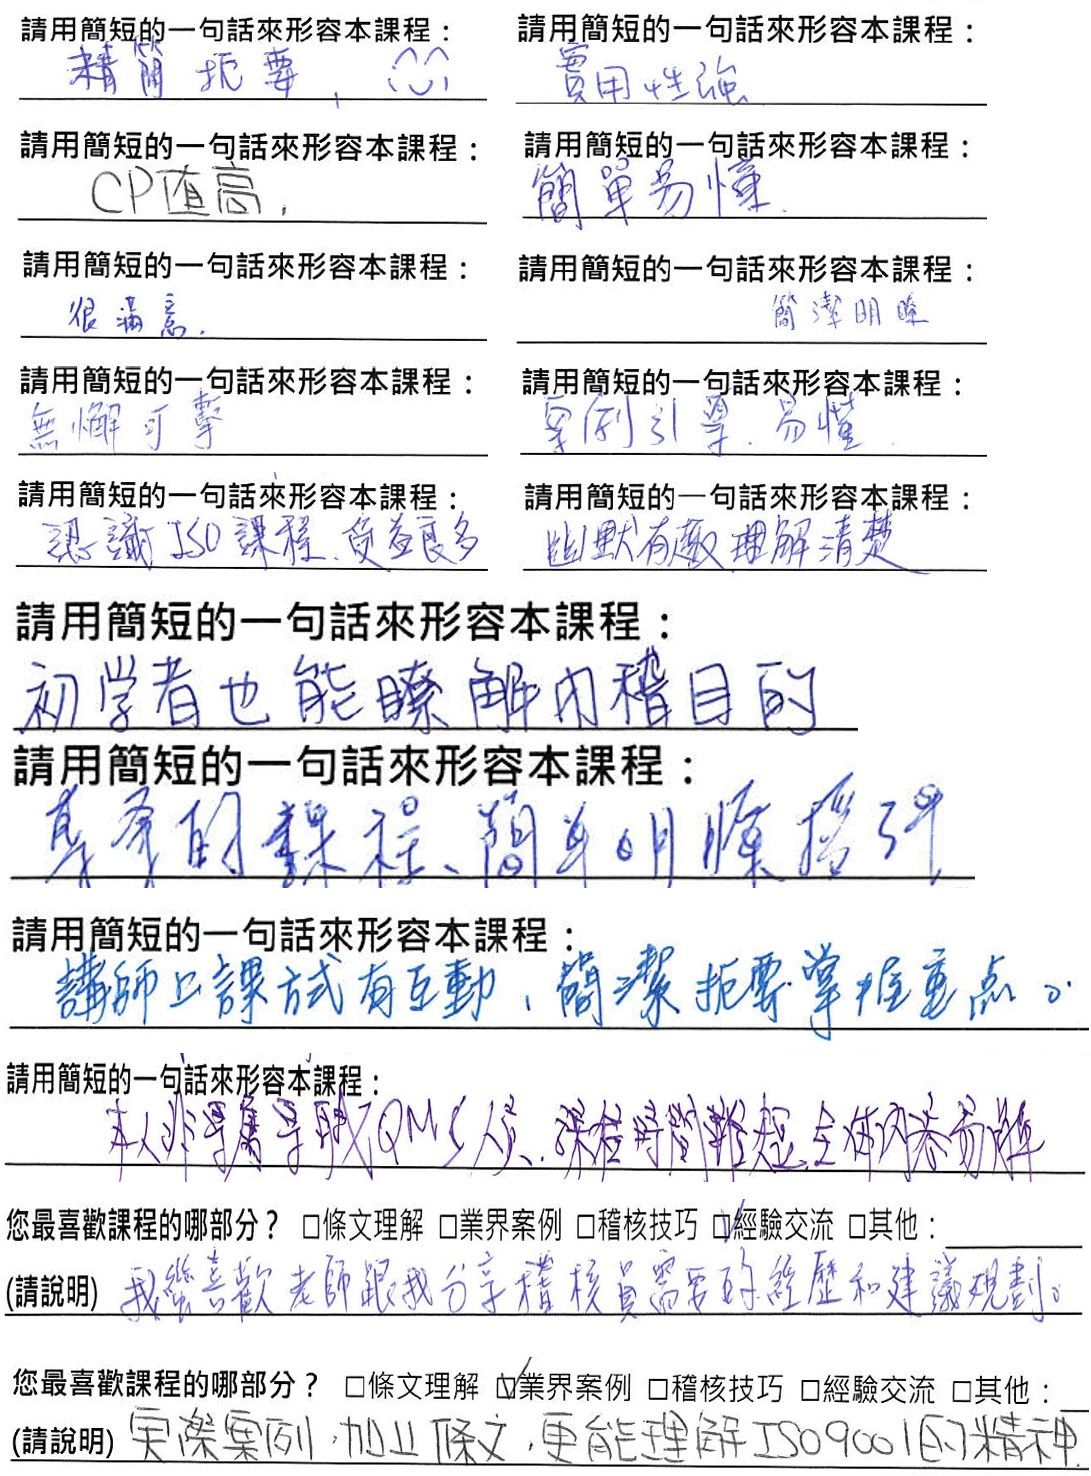 請用簡短的一句話來形容本課程：
精簡扼要，
請用簡短的一句話來形容本課程：
實用性強
請用簡短的一句話來形容本課程：
CP值高.
請用簡短的一句話來形容本課程：
簡單易懂.
請用簡短的一句話來形容本課程：
很滿意.
請用簡短的一句話來形容本課程：
簡潔明瞭
請用簡短的一句話來形容本課程：
無懈可擊
請用簡短的一句話來形容本課程：
案例引導.易懂.
請用簡短的一句話來形容本課程：
認識ISO課程、受益良多
請用簡短的一句話來形容本課程：
幽默有趣理解清楚
請用簡短的一句話來形容本課程：
初学者也能瞭解內稽目的
請用簡短的一句話來形容本課程：
的課程、簡單明瞭
請用簡短的一句話來形容本課程：
講師上課方式有互動，簡潔扼要掌握重点。
請用簡短的一句話來形容本課程：
本人非專屬專職QMS人員、課程時間雖短、全体內容易解
您最喜歡課程的哪部分？ □條文理解 □業界案例 □稽核技巧 ☑經驗交流 □其他：
(請說明) 我蠻喜歡老師跟我分享稽核員需要的經歷和建議規劃。
您最喜歡課程的哪部分？ □條文理解 ☑業界案例 □稽核技巧 □經驗交流 □其他：
(請說明) 実際案例，加上條文，更能理解ISO9001的精神.